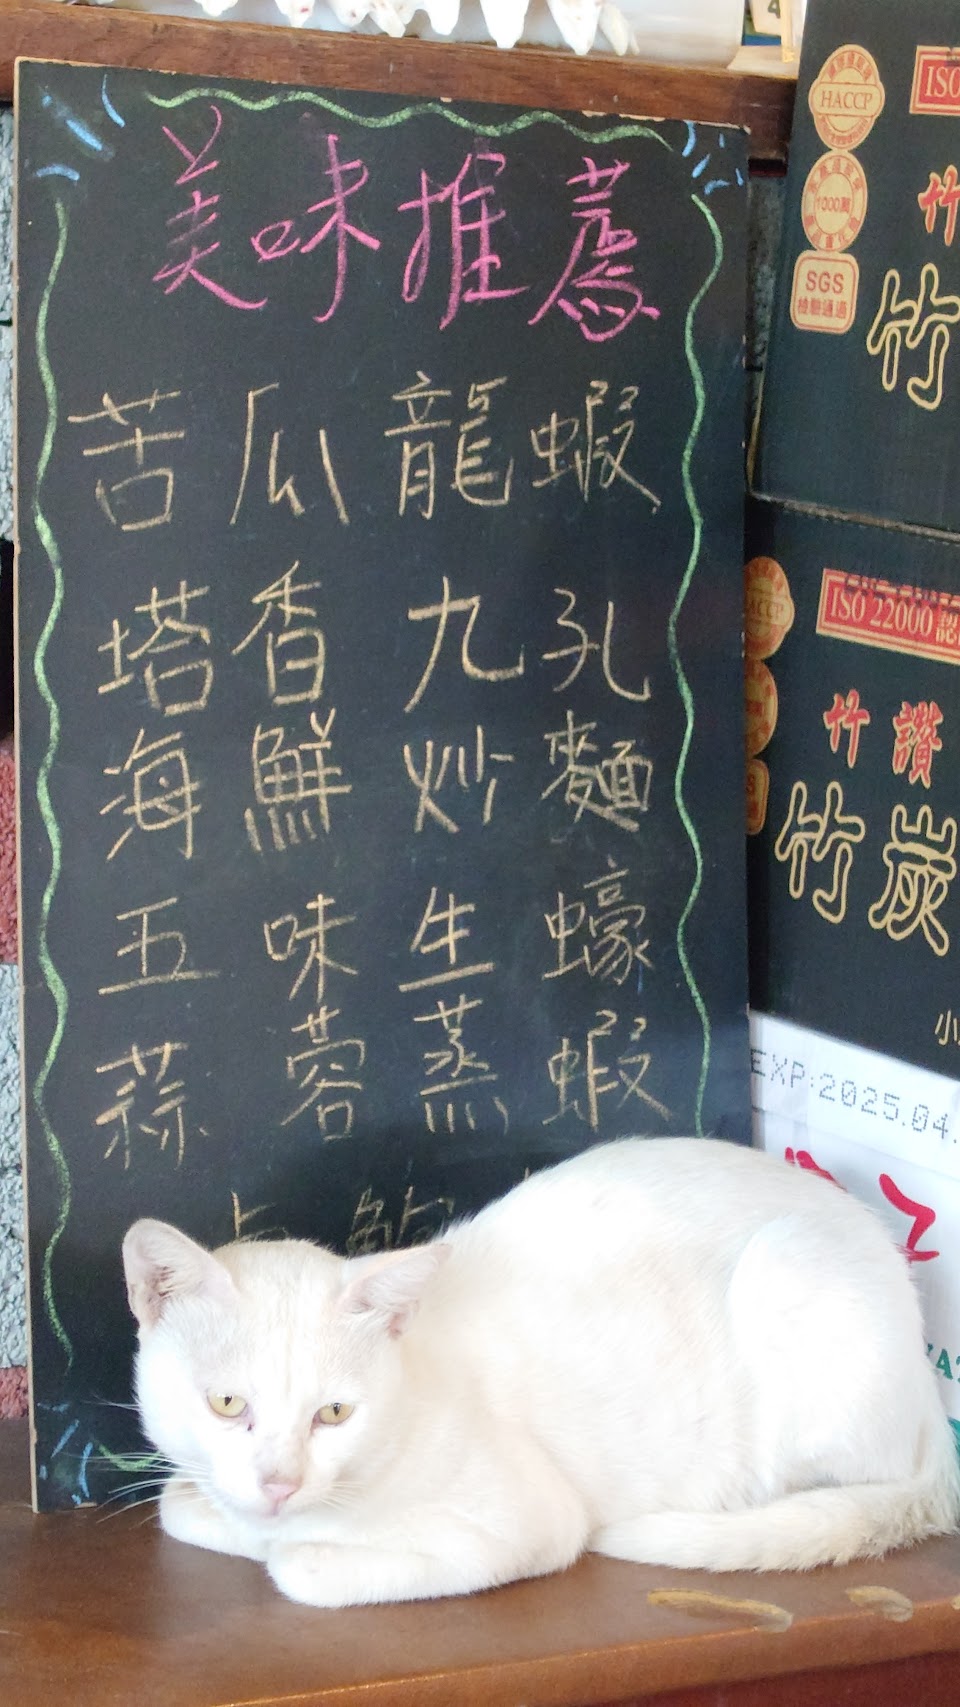 美味推薦
苦瓜龍蝦
塔香九孔
海鮮炒麵
五味生蠔
蒜蓉蒸蝦
鮑
HACCP
1000萬
SGS
檢驗通過
ISO
竹
竹
HACCP
ISO 22000 認
竹讚
竹炭
小
EXP:2025.04.